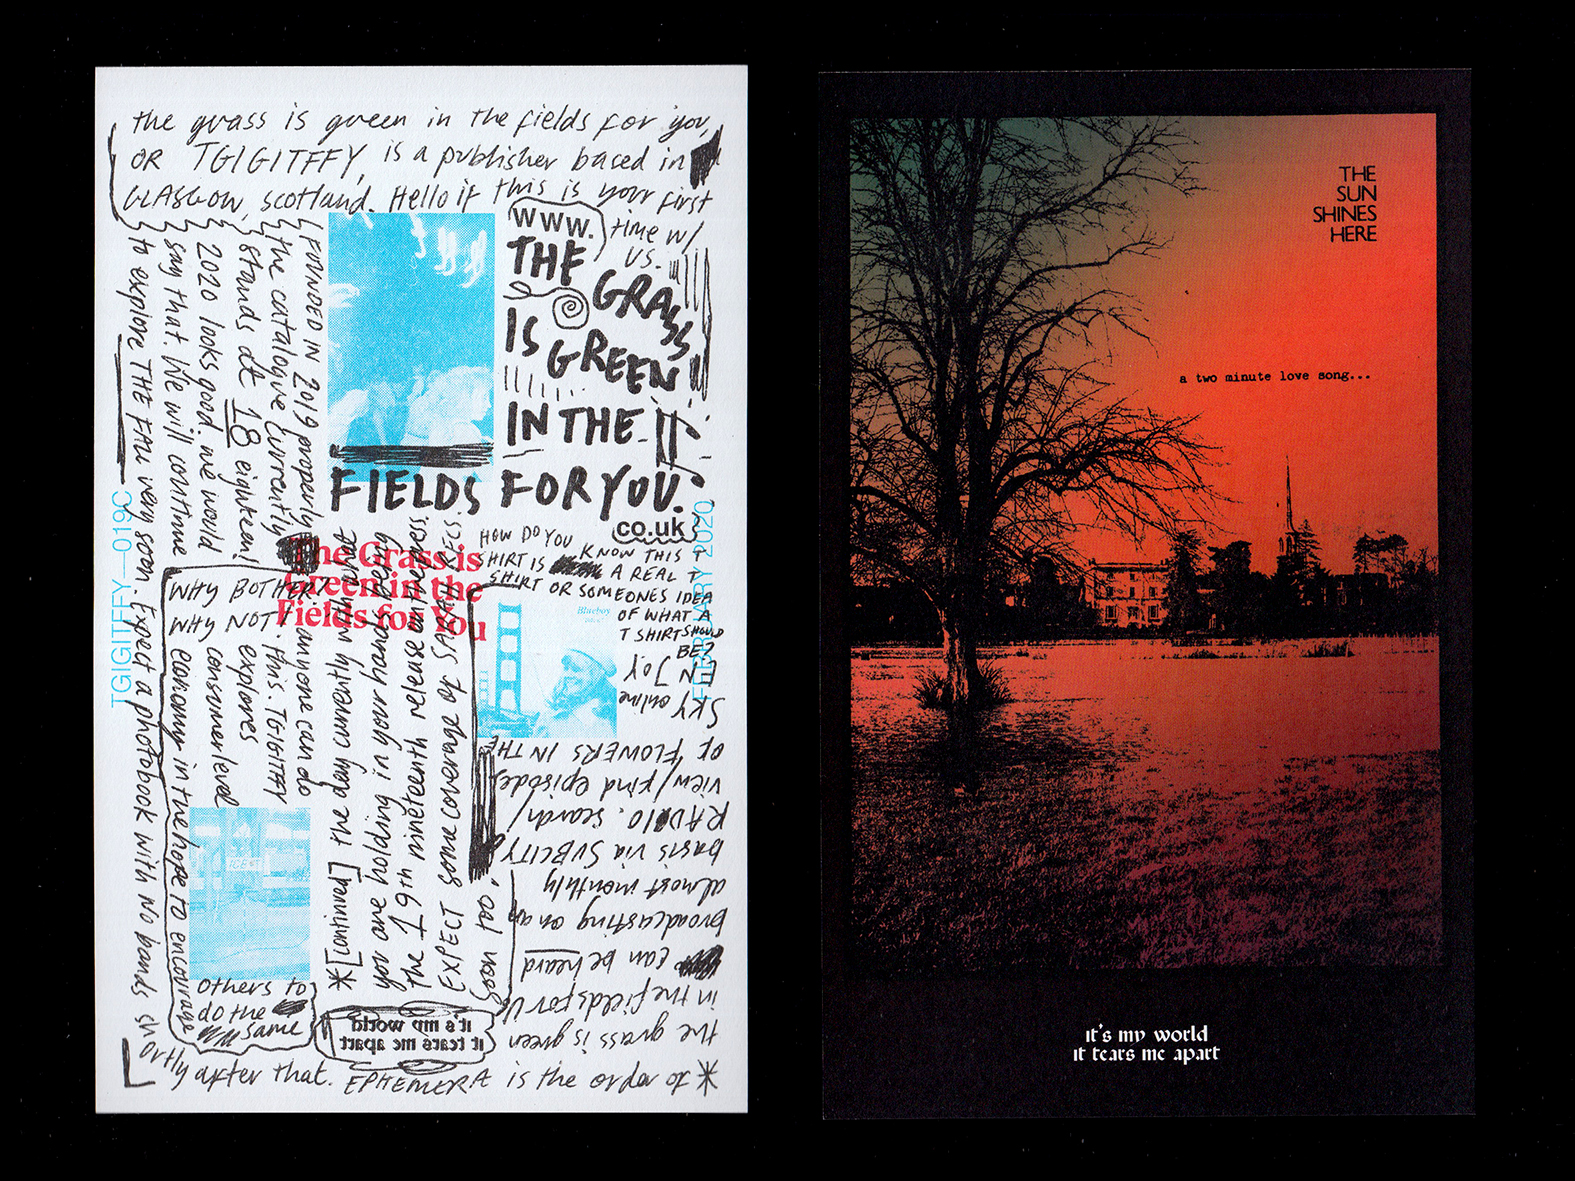 the grass is green in the fields for you,
OR TGIGITFFY, is a publisher based in
GLASGOW, scotland. Hello if this is your first
time w/
us.
FOUNDED IN 2019 properly
the catalogue currently
stands at 18 eighteen!
2020 looks good. we would
say that. We will continue
to explore THE FAV very soon. Expect a photobook with no hands shortly after that. EPHEMERA is the order of *
*[continued] the day currently with what
you are holding in your hands being
the 19th nineteenth release entire.
EXPECT some coverage of
soon too.
WWW.
THE
GRASS
IS
GREEN
IN THE
FIELDS FOR YOU.
co.uk
HOW DO YOU KNOW THIS T
SHIRT IS A REAL T
SHIRT OR SOMEONES IDEA
OF WHAT A
T SHIRT SHOULD
BE?
ENJOY.
The Grass is
Green in the
Fields for You
WHY BOTHER?
WHY NOT?
anyone can do
this. TGIGITFFY
explores
consumer level
economy in the hope to encourage
others to
do the
same
Blueboy
ICE
*
the grass is green
in the fields for U
can be heard
broadcasting on an
almost monthly
basis via SUBCITY
RADIO. search/
view/find episodes
of FLOWERS IN THE
SKY online
it's my world
it tears me apart
TGIGITFFY—019C
FEBRUARY 2020
THE
SUN
SHINES
HERE
a two minute love song...
it's my world
it tears me apart